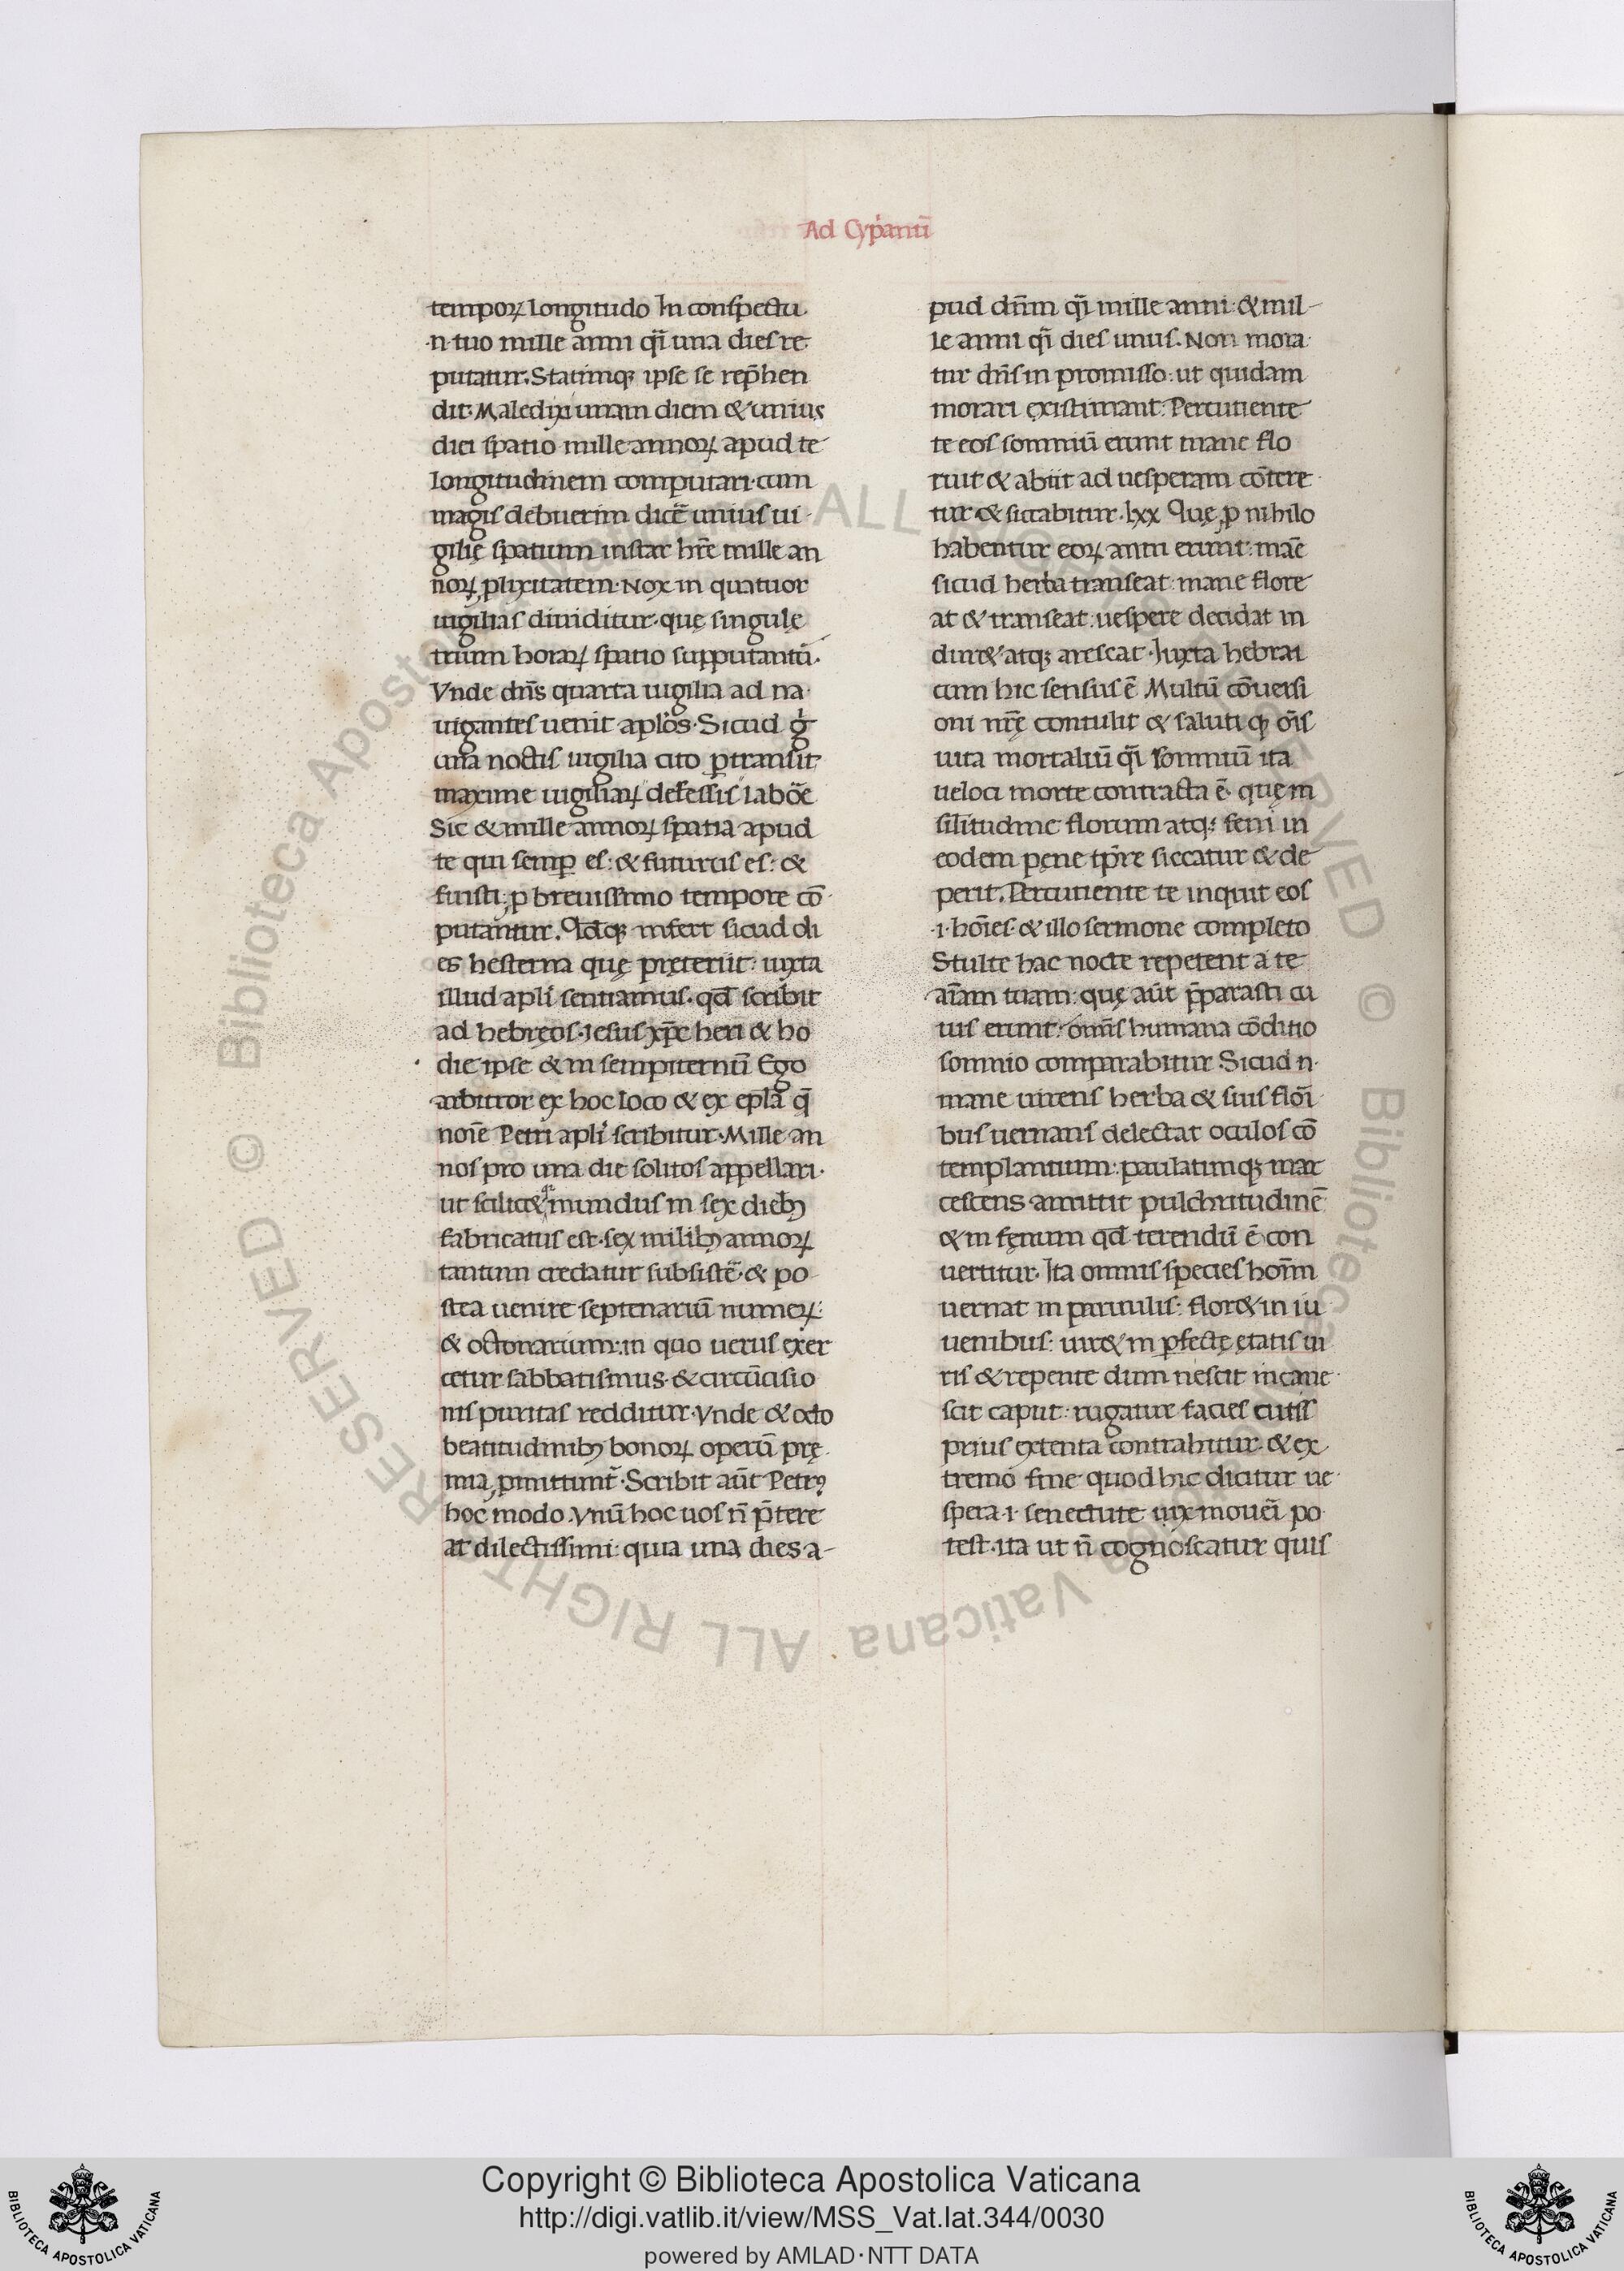 Ad Cyp̄anū
tempoꝝ longitudo In conspectu
n tuo mille anni qͣi una dies re
putatur. Statimqꝫ ipse se rep̄hen
dit. Maledixi unam diem & unius
diei spatio mille annoꝝ apud te
longitudinem computari. cum
magis debuerim dicē unius ui
gilię spatium instar hr̄e mille an
noꝝ ꝓlixitatem. Nox in quatuor
uigilias diuiditur. quę singulę
trium horaꝝ spatio supputantū.
Vnde dn̄s quarta uigilia ad na
uigantes uenit aplōs. Sicud gͦ
una noctis uigilia cito ꝑtransit
maxime uigiliaꝝ defessis labōe
Sic & mille annoꝝ spatia apud
te qui semꝑ es: & futurus es: & 
fuisti: ꝓ breuissimo tempore cō
putantur. Idqꝫ infert sicud di
es hesterna quę pręteriit: iuxta
illud apli sentiamus. qd̄ scribit
ad hebręos. iesus xp̄c heri & ho
die ipse & in sempiternū Ego
arbitror ex hoc loco & ex epl̄a q̄
noīe Petri apli scribitur. Mille an
nos pro una die solitos appellari.
ut scilic& qͣ mundus in sex diebꝫ
fabricatus est. sex milibꝫ annoꝝ
tantum credatur subsistē. & po
stea uenire septenariū numeꝝ:
& octonarium: in quo uerus exer
cetur sabbatismus. & circūcisio
nis puritas redditur. Vnde & octo
beatitudinibꝫ bonoꝝ operū prę
mia ꝓmittunt̄. Scribit aūt Petrꝰ
hoc modo. Vnū hoc uos n̄ p̄tere
at dilectissimi: quia una dies a-
pud dn̄m qͣi mille anni: & mil-
le anni qͣi dies unus. Non mora
tur dn̄s in promisso: ut quidam
morari existimant. Percutiente
te eos somniū erunt mane flo
ruit & abiit ad uesperam cōtere
tur & siccabitur. lxx Quę ꝓ nihilo
habentur eoꝝ anni erunt: māe
sicud herba transeat: mane flore
at & transeat: uespere decidat in
dur& atqꝫ arescat. Iuxta hebrai
cum hic sensus ē Multū cōuersi
oni nr̄ę contulit & saluti qꝫ oīs
uita mortaliū qͣi somniū ita
ueloci morte contracta ē. quę in
sil̄itudine florum atqꝫ feni in
eodem pęne tp̄re siccatur & de
perit. Percutiente te inquit eos
.i. hoīes. & illo sermone completo
Stulte hac nocte repetent a te
aīam tuam: quę aūt p̄parasti cu
ius erunt. omīs humana cōditio
somnio comparabitur. Sicud n
mane uirens herba & suis flōi
bus uernans delectat oculos cō
templantium: paulatimqꝫ mar
cescens amittit pulchritudinē
& in fęnum qd̄ terendū ē con
uertitur. Ita omnis species hoīm
uernat in paruulis: flor& in iu
uenibus: uir& in ꝑfectę ętatis ui
ris & repente dum nescit incane
scit caput: rugatur facies cutis
prius extenta contrahitur. & ex
tremo fine quod hic dicitur ue
spera .i. senectute uix mouēi po
test. ita ut n̄ cognoscatur quis
© Biblioteca Apostolica Vaticana ALL RIGHTS RESERVED
© Biblioteca Apostolica Vaticana ALL RIGHTS RESERVED
Copyright © Biblioteca Apostolica Vaticana
http://digi.vatlib.it/view/MSS_Vat.lat.344/0030
powered by AMLAD·NTT DATA
BIBLIOTECA APOSTOLICA VATICANA
BIBLIOTECA APOSTOLICA VATICANA